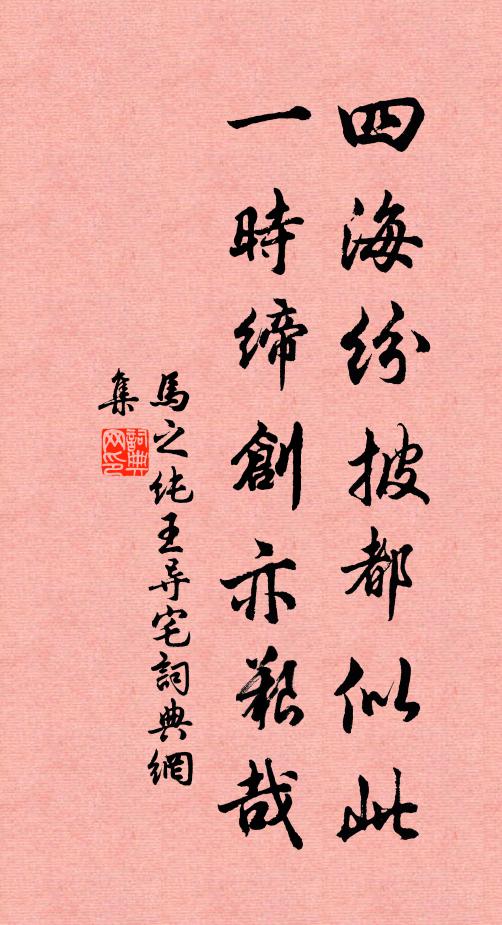 四海纷披都似此
一時締創亦艱哉
馬之纯王导宅詞典網
集
詞典网印